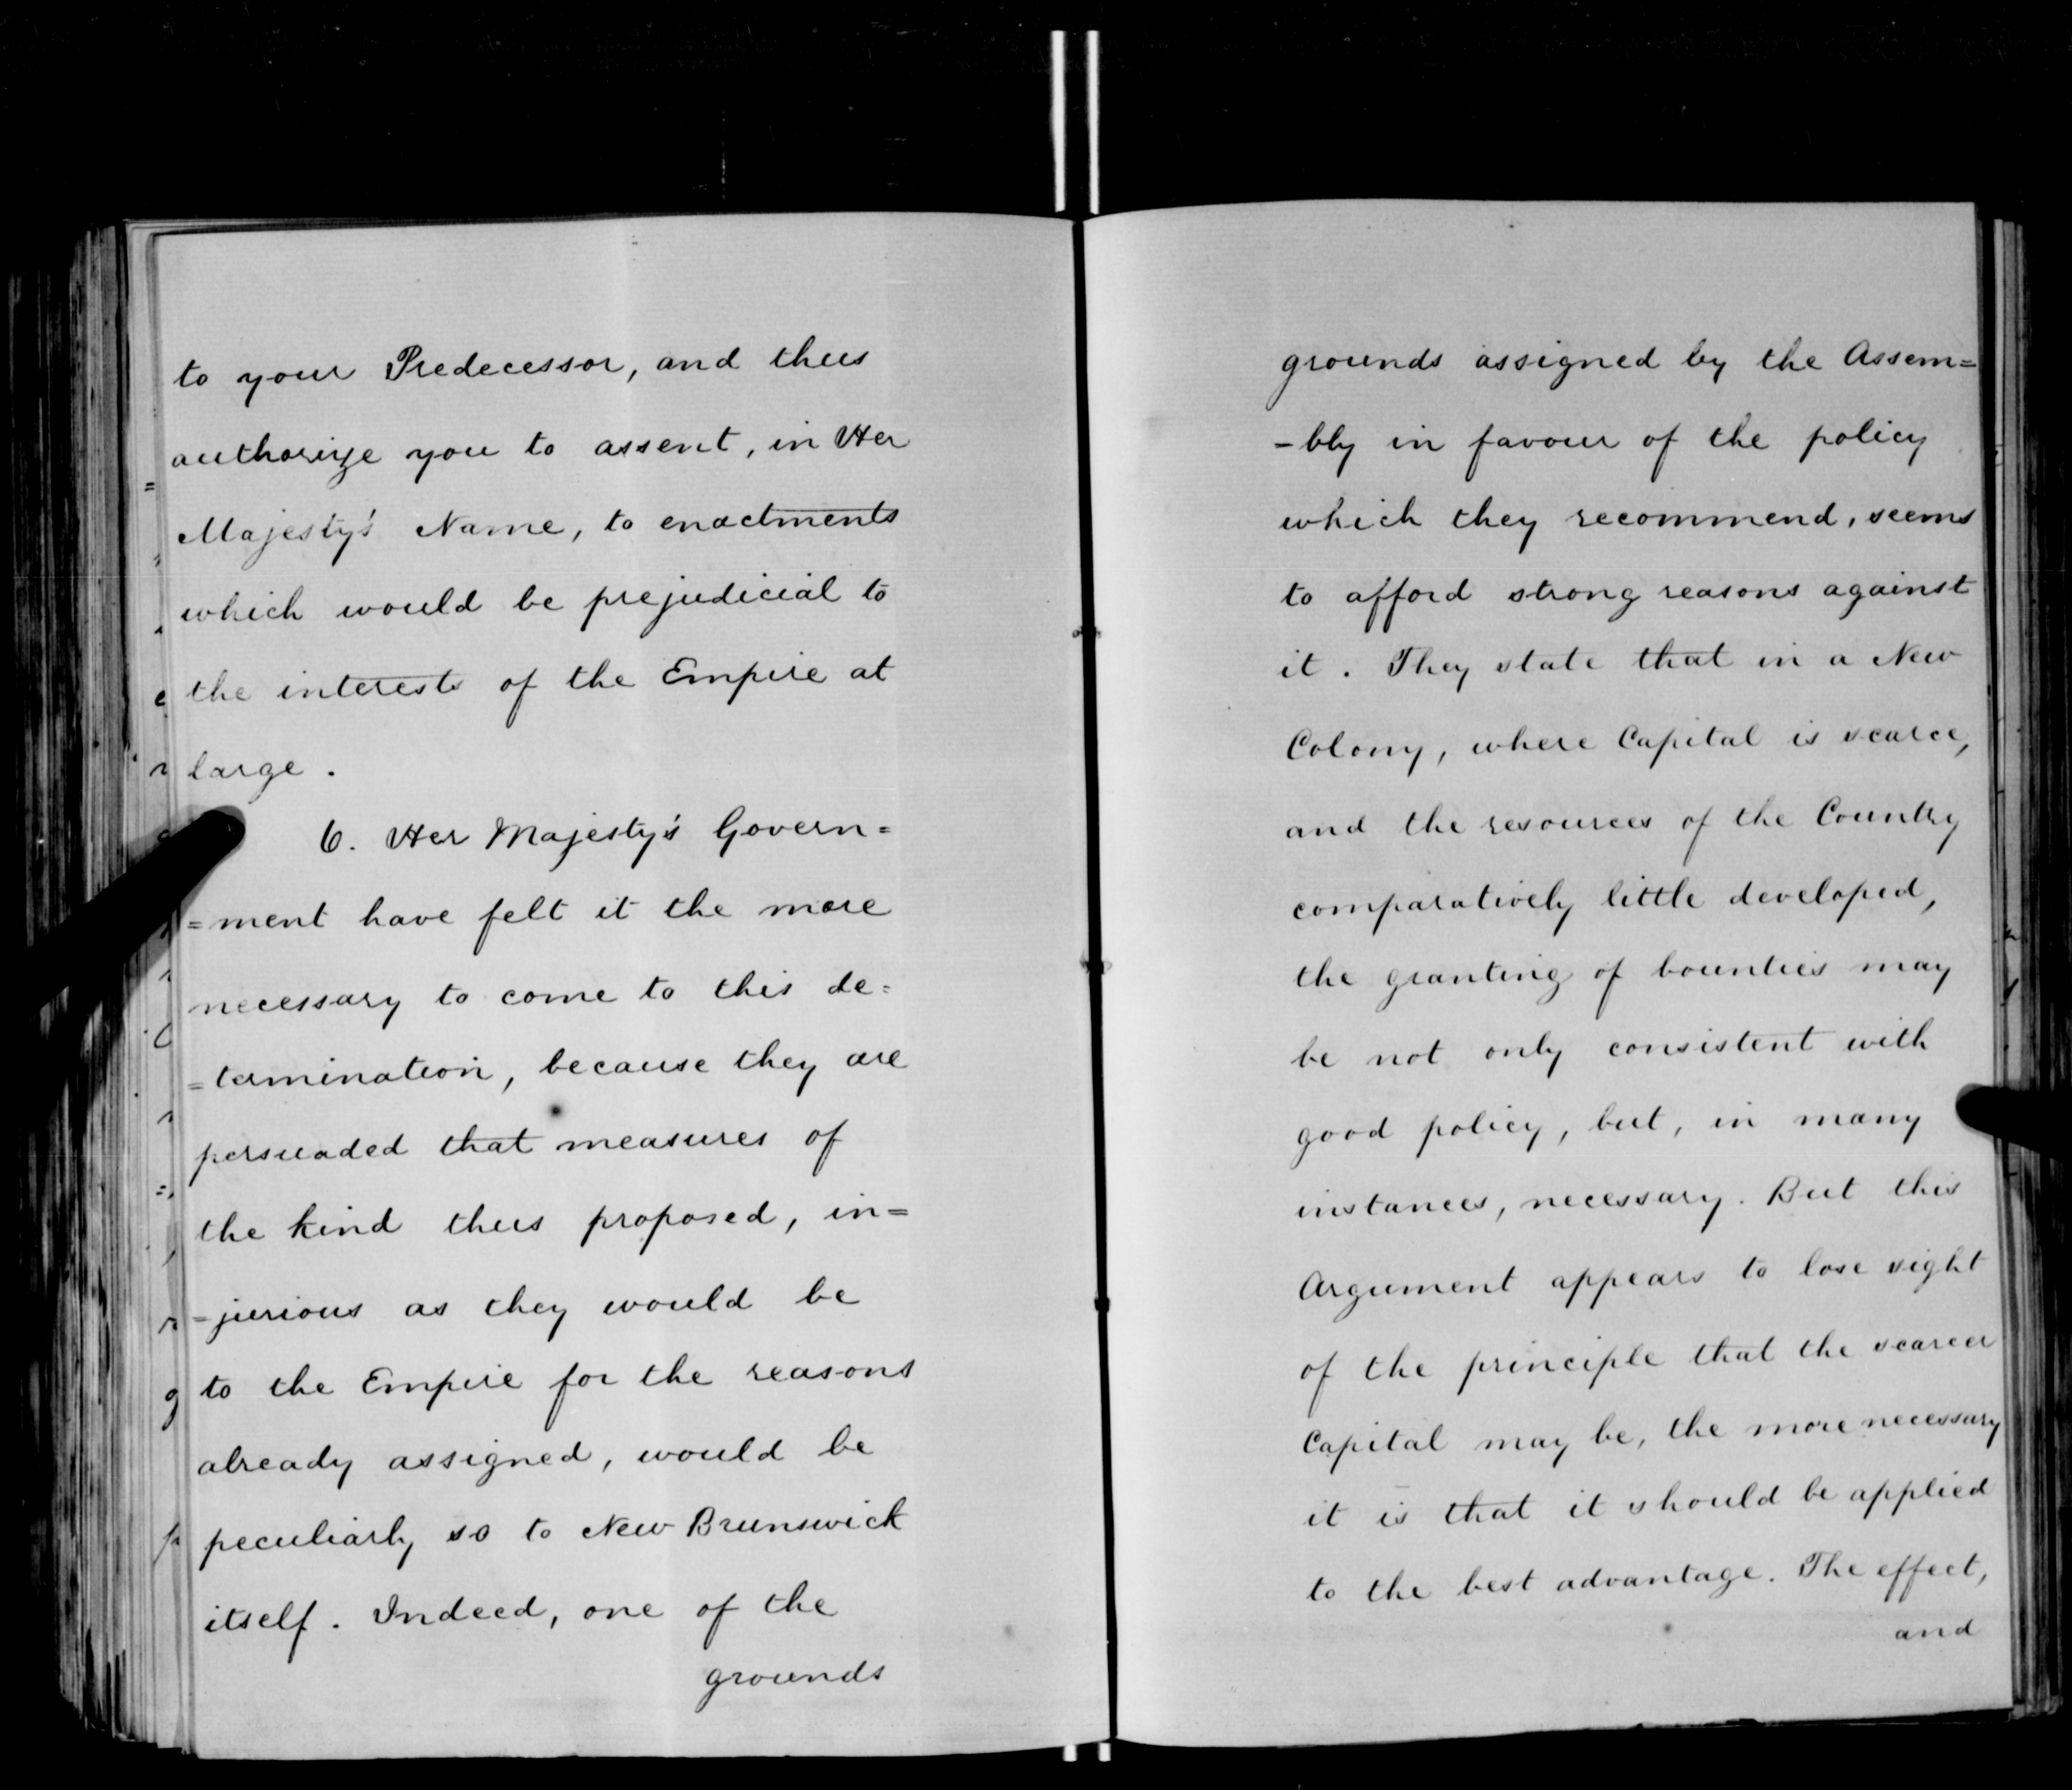 to your Predecessor, and thus
authorize you to assent, in Her
Majesty's Name, to enactments
which would be prejudicial to
the interests of the Empire at
large.
6. Her Majesty's Govern=
=ment have felt it the more
necessary to come to this de=
=termination, because they are
persuaded that measures of
the kind thus proposed, in=
=jurious as they would be
to the Empire for the reasons
already assigned, would be
peculiarly so to New Brunswick
itself. Indeed, one of the
grounds
grounds assigned by the Assem=
-bly in favour of the policy
which they recommend, seems
to afford strong reasons against
it. They state that in a New
Colony, where Capital is scarce,
and the resources of the Country
comparatively little developed,
the granting of bounties may
be not only consistent with
good policy, but, in many
instances, necessary. But this
Argument appears to lose sight
of the principle that the scarcer
Capital may be, the more necessary
it is that it should be applied
to the best advantage. The effect,
and